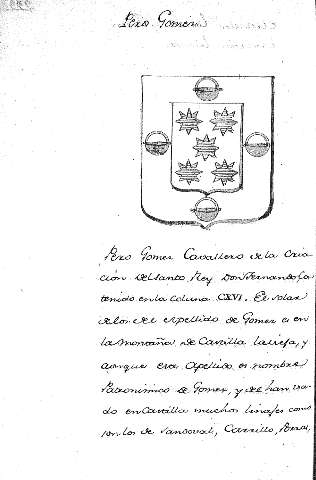 Pero Gomez
Pero Gomez Cavallero de la Cria
cion del Santo Rey Don Fernando Co
tenido en la Coluna CXVI. El solar
de los del Apellido de Gomez es en
la Montaña de Castilla la vieja, y
aunque este Apellido es nombre
Patronimico de Gomez, y del han usa
do en Castilla muchos linajes como
son los de Sandoval, Carrillo, Porras,